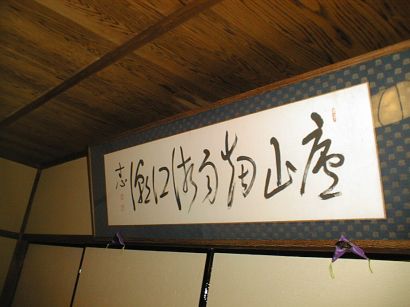 廬山烟雨浙江潮